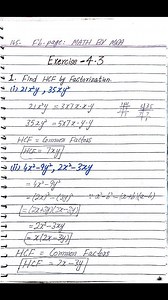 Fb-page: MATH BY MQA
Exercise - 4.3
1. Find HCF by Factorization.
(i) 21x²y , 35xy²
21x²y = 3×7×x·x·y
35xy² = 5×7×x·y·y
HCF = Common Factors
HCF = 7xy
(ii) 4x²-9y², 2x²-3xy
= 4x²-9y²
= (2x)²-(3y)² ∴ a²-b²=(a+b)(a-b)
= (2x+3y)(2x-3y)
= 2x²-3xy
= x(2x-3y)
HCF = Common Factors
HCF = 2x-3y